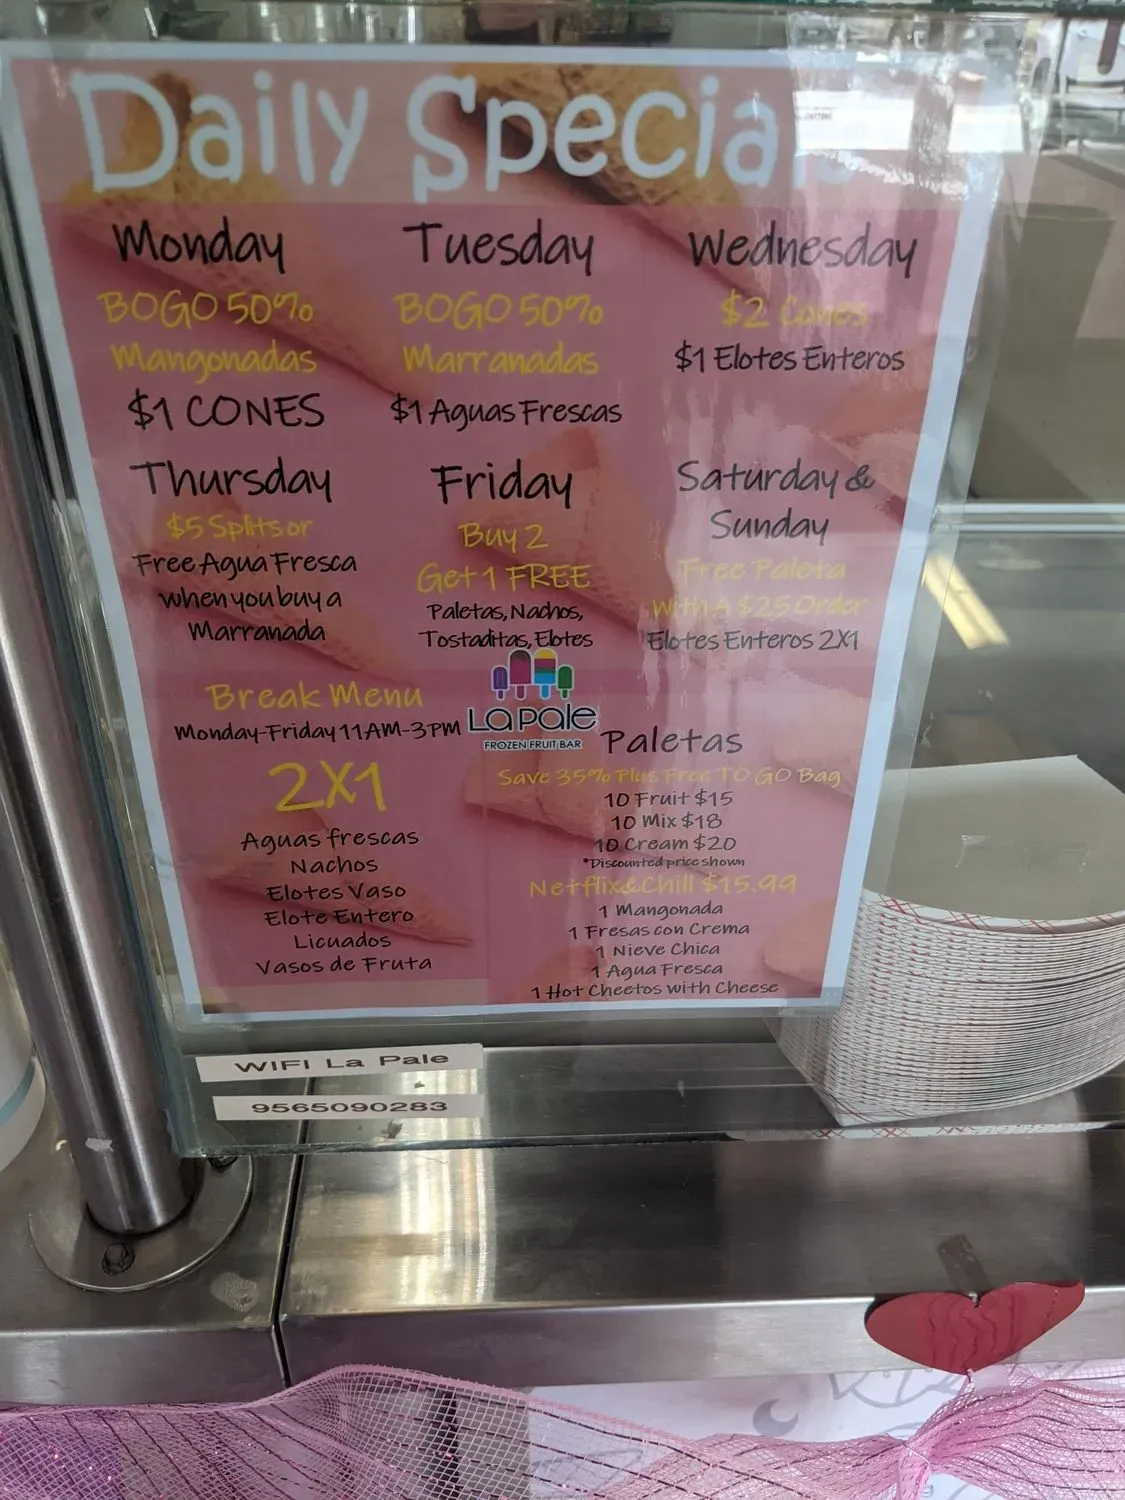 Daily Specials
Monday
BOGO 50%
Mangonadas
$1 CONES
Tuesday
BOGO 50%
Marranadas
$1 Aguas Frescas
Wednesday
$2 Cones
$1 Elotes Enteros
Thursday
$5 Splits or
Free Agua Fresca
when you buy a
Marranada
Friday
Buy 2
Get 1 FREE
Paletas, Nachos,
Tostaditas, Elotes
Saturday &
Sunday
Free Paleta
With A $25 Order
Elotes Enteros 2X1
Break Menu
Monday-Friday 11AM-3PM
2X1
Aguas frescas
Nachos
Elotes Vaso
Elote Entero
Licuados
Vasos de Fruta
La Pale
FROZEN FRUIT BAR
Paletas
Save 35% Plus Free TO GO Bag
10 Fruit $15
10 Mix $18
10 Cream $20
*Discounted price shown
Netflix&Chill $15.99
1 Mangonada
1 Fresas con Crema
1 Nieve Chica
1 Agua Fresca
1 Hot Cheetos with Cheese
WIFI La Pale
9565090283